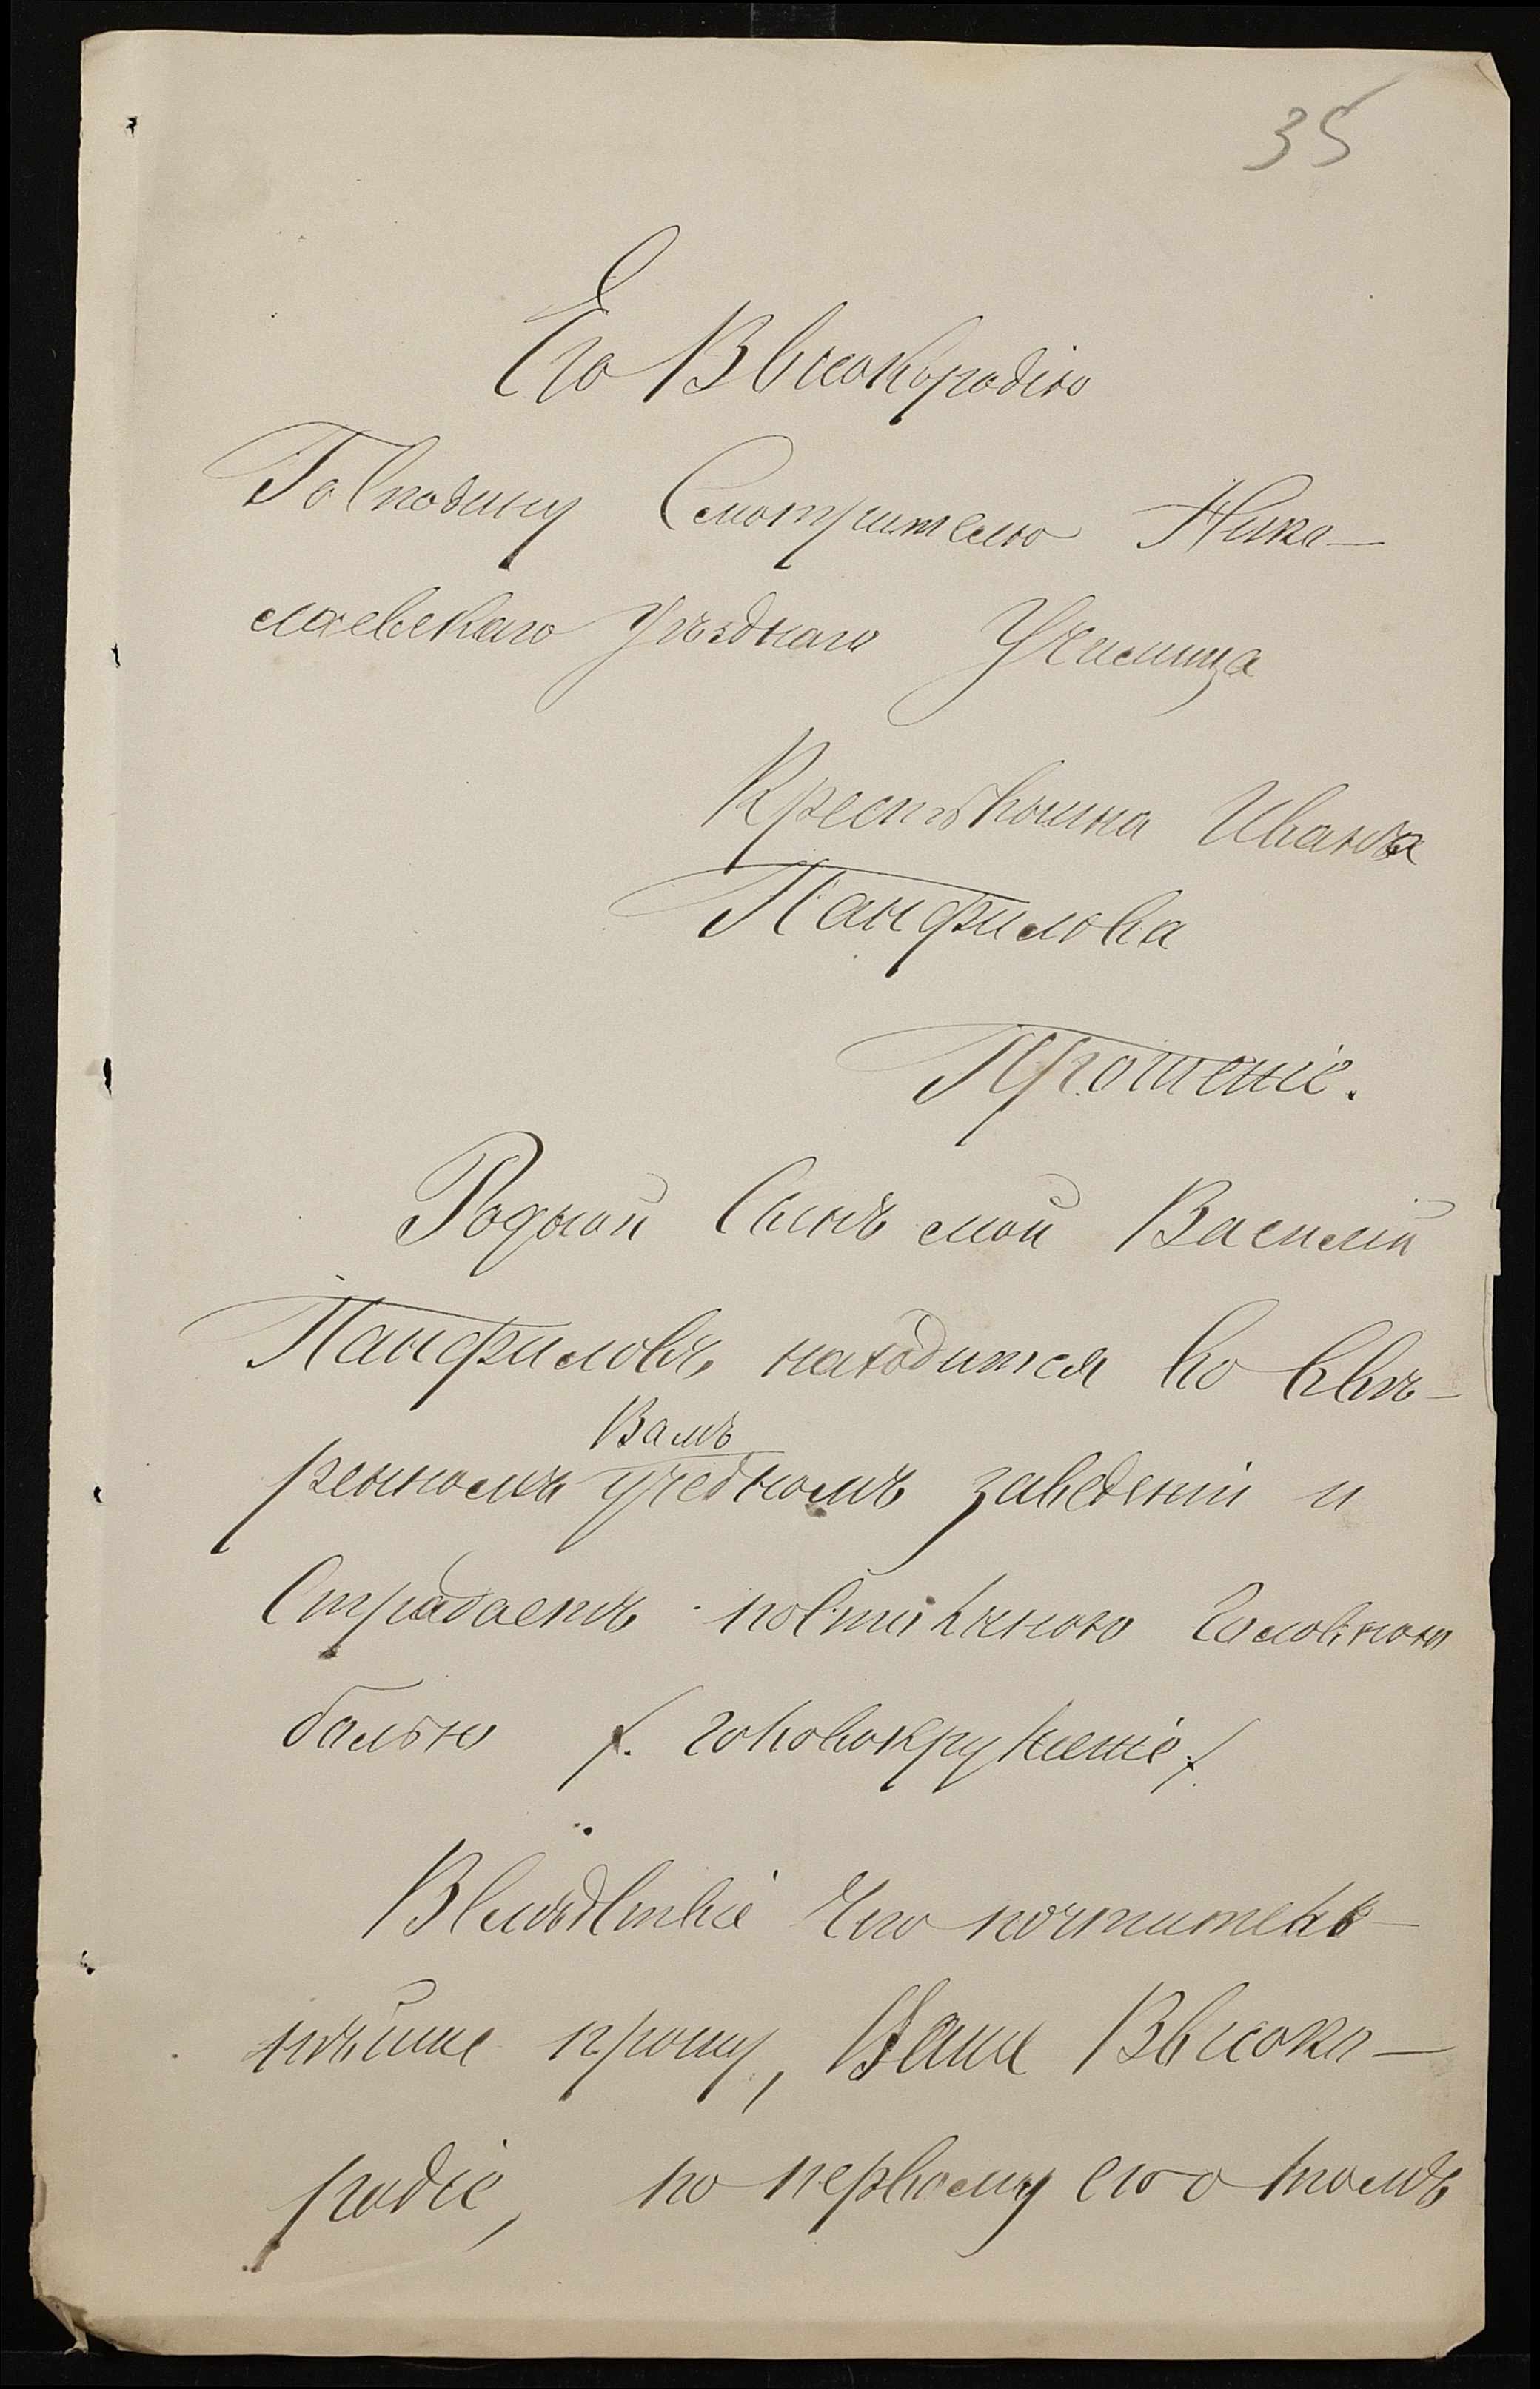 35
Его Высокородію
Господину Смотрителю Нико-
лаевскаго Уѣзднаго Училища
Крестьянина Ивана
Панфилова
Прошеніе.
Родной Сынъ мой Василій
Панфиловъ находится во ввѣ-
Вамъ
ренномъ учебномъ заведеніи и
Страдаетъ головною
болью /. головокруженіе ./
Вслѣдствіе чего почтитель-
нѣйше прошу, Ваше Высоко-
родіе, по первому его о томъ